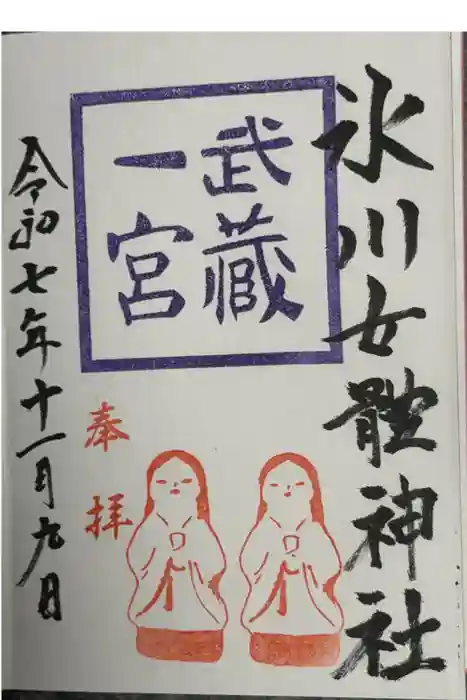 氷川女體神社
武蔵
一宮
奉拝
令和七年十一月九日